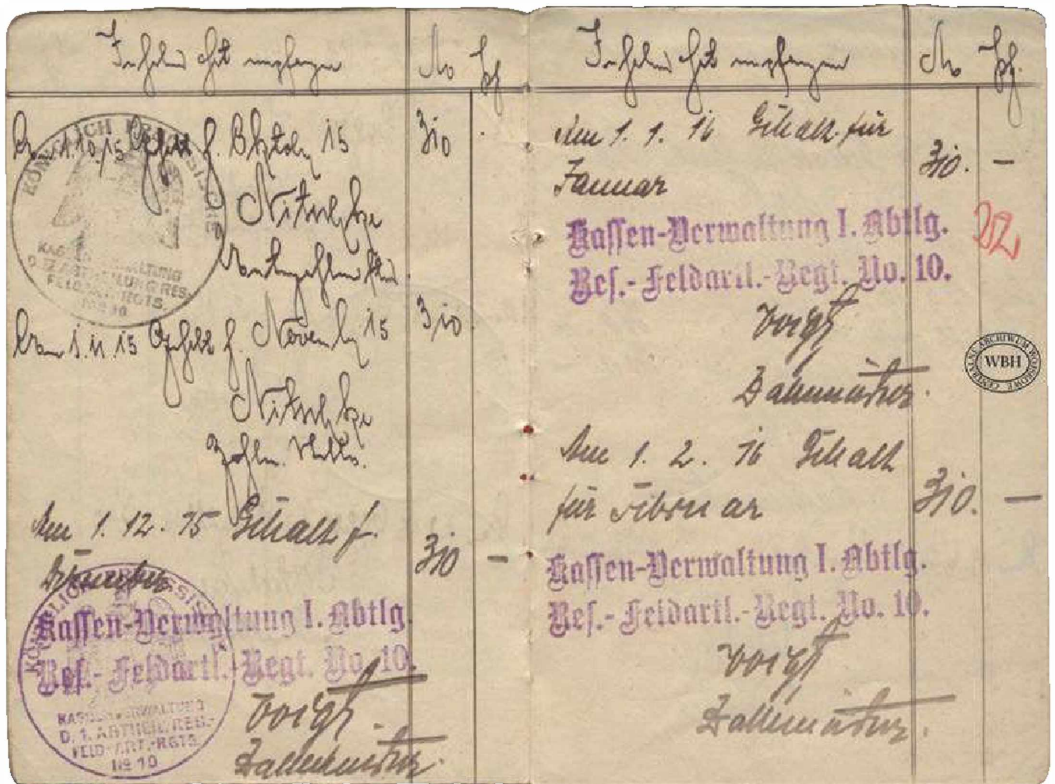 Inhaber hat empfangen M Pf.
KÖNIGLICH PREUSSISCHE
Am 1.10.15 Gehalt f. Oktober 15 310
Nitschke
KASSENVERWALTUNG
ABTHEILUNG RES.
FELD-ART.-RGTS.
No 10
Am 1.11.15 Gehalt f. November 15 310
Nitschke
Zahlm. Stellv.
Am 1.12.15 Gehalt f.
Dezember 310 –
Kassen-Verwaltung I. Abtlg.
Res.-Feldartl.-Regt. No. 10.
KÖNIGLICH PREUSSISCHE
KASSENVERWALTUNG
D. 1. ABTHEIL. RES.
FELD-ART.-RGTS.
No 10
Voigt
Zahlmeister.
Inhaber hat empfangen M Pf.
Am 1.1.16 Gehalt für
Januar 310. –
Kassen-Verwaltung I. Abtlg.
Res.-Feldartl.-Regt. No. 10.
Voigt
Zahlmeister.
CENTRALNE ARCHIWUM WOJSKOWE
WBH
Am 1.2.16 Gehalt
für Februar 310. –
Kassen-Verwaltung I. Abtlg.
Res.-Feldartl.-Regt. No. 10.
Voigt
Zahlmeister.